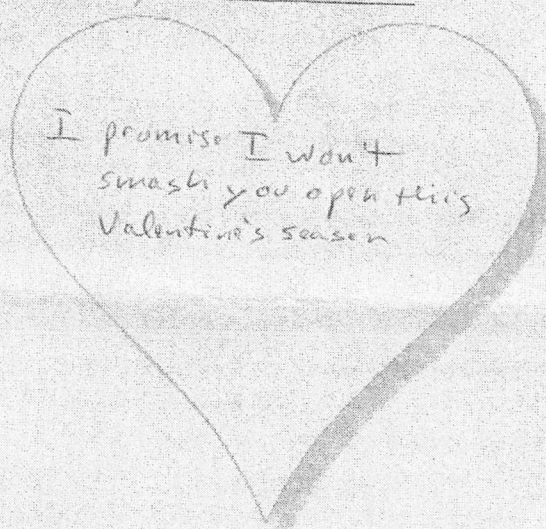 I promise I won't
smash you open this
Valentine's season